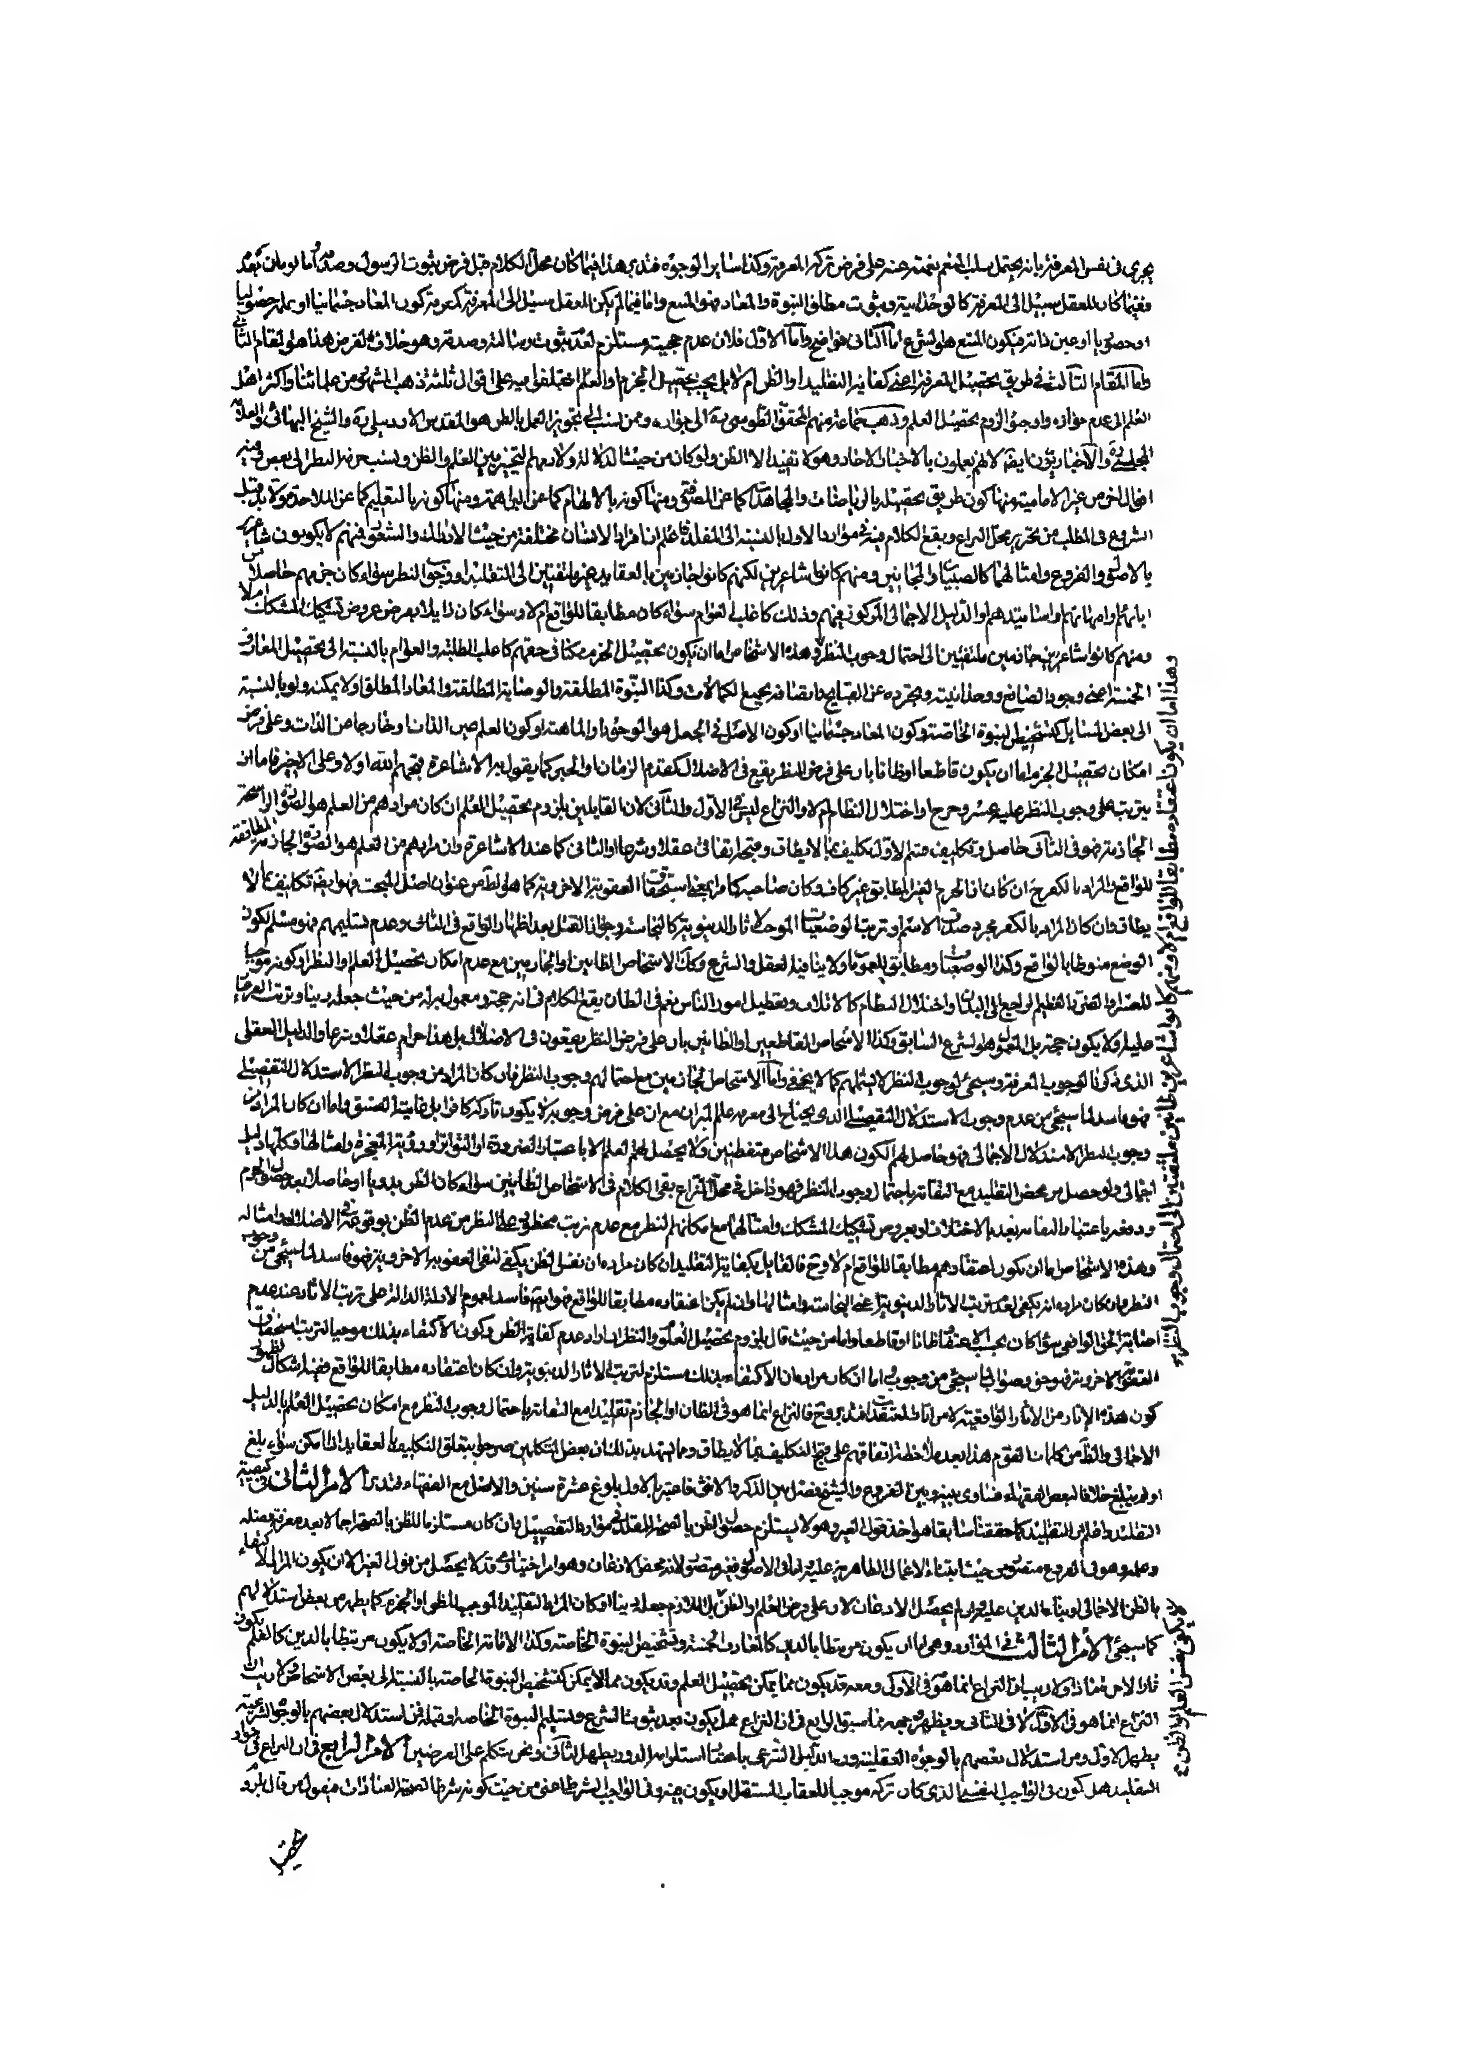 يجرى فى نفس المعرفة بانه يحتمل سلب المنعم نعمته عنه على فرض تركه المعرفة وكذا ساير الوجوه هذا فيما كان محل الكلام قبل فرض ثبوت الرسول وصدقه واما لو كان بعده
وفيما كان للعقل سبيل الى المعرفة كالوحدانية وثبوت مطلق النبوة والمعاد فهو المتبع واما فيما لم يكن للعقل سبيل الى المعرفة كمعرفة كون المعاد جسمانيا او علمه حضوريا
او حصوليا او عين ذاته فيكون المتبع هو الشرع اما الثانى فواضح واما الاول فلان عدم حجيته مستلزم لعدم ثبوت رسالته وصدقه وهو خلاف الفرض هذا هو المقام الثانى
واما المقام الثالث فى طريق تحصيل المعرفة اعنى كفاية التقليد او الظن ام لا بل يجب تحصيل الجزم والعلم اختلفوا فيه على اقوال ثلثة ذهب المشهور من علمائنا واكثر اهل
العلم الى عدم جوازه ووجوب لزوم تحصيل العلم وذهب جماعة منهم المحقق الطوسى ره الى جوازه وممن نسب الى تجويز العمل بالظن هو المقدس الاردبيلى ره والشيخ البهائى والعلامة
المجلسى ره والاخباريون ايضا لانهم يعملون بالاخبار الاحاد وهو لا تفيد الا الظن ولو كان من حيث الدلالة ولا بد لهم التخيير بين العلم والظن ونسب حرمة النظر الى بعض وفيه
اقوال اخر من غير الامامية ومنها كون طريق تحصيله بالرياضات والمجاهدات كما عن الصوفى ومنها كونه بالالهام كما عن البراهمة ومنها كونه بالتعليم كما عن الملاحدة ولا بد قبل
الشروع فى المطلب من تحرير محل النزاع ويقع الكلام فيه فى موارد الاول بالنسبة الى المقلد فاعلم ان افراد الانسان مختلفة من حيث الادراك والشعور فمنهم لا يكونون شاعرين
بالاصول والفروع وامثالهما كالصبيان والمجانين ومنهم كانوا شاعرين لكنهم كانوا جازمين بالعقايد غير ملتفتين الى التقليد او وجوب النظر سواء كان جزمهم حاصلا من
ابائهم وامهاتهم واساتيدهم او الدليل الاجمالى المركوز فيهم وذلك كاغلب العوام سواء كان مطابقا للواقع ام لا وسواء كان زايلا بعرض عروض تشكيك المشكك ام لا
ومنهم كانوا شاعرين جازمين ملتفتين الى احتمال وجوب النظر وهذه الاشخاص اما ان يكون تحصيل الجزم ممكنا فى حقهم كاغلب الطلبة والعوام بالنسبة الى تحصيل المعارف
الخمسة اعنى وجود الصانع ووحدانيته وتجرده عن القبايح واتصافه بجميع الكمالات وكذا النبوة المطلقة والوصاية المطلقة والمعاد المطلق او لا يمكنه ولو بالنسبة
الى بعض المسايل كتشخيص النبوة الخاصة وكون المعاد جسمانيا او كون الاصل فى الجعل هو الوجود او الماهية او كون العلم عين الذات او خارجا عن الذات وعلى فرض
امكان تحصيل الجزم اما ان يكون قاطعا او ظانا بان على فرض النظر يقع فى الاضلال كقدم الزمان او الجبر كما يقول به الاشاعرة قبحهم الله او لا وعلى الاخير فاما ان
يترتب على وجوب النظر عليه عسر وحرج واختلال النظام ام لا والنزاع ليس فى الاول والثانى لان القايلين بلزوم تحصيل العلم ان كان مرادهم من العلم هو الصورة الراسخة
الجازمة فهو فى الثانى حاصل وتكليفه متم الاول تكليف بما لا يطاق وقبحه اتفاقى عقلا وشرعا والثانى كما عند الاشاعرة وان مرادهم من العلم هو الصورة الجازمة المطابقة
للواقع والمراد بالكفر ح ان كان ان الجزم الغير المطابق غير كاف وكان صاحبه كافرا بمعنى استحقاق العقوبة الاخروية كما هو الظ من عنوان اصل المبحث فهو ايضا تكليف بما لا
يطاق وان كان المراد بالكفر مجرد صدق الاسم او ترتب الوضعيات الموجب لاثار الدنيوية كالنجاسة وجواز القتل بعد اظهار الواقع فى المسالك وعدم تسليمهم فهو مسلم لكون
الوضع منوطا بالواقع وكذا الوضعيات ومطابق للعموم ولا ينافيه العقل والشرع وكك الاشخاص الظانين او الجازمين مع عدم امكان تحصيل العلم والنظر او كونه موجبا
للعسر والضرر العظيم الراجع الى البدن او اختلال النظام كالاتلاف وتعطيل امور الناس نعم فى الظان يقع الكلام فى انه حجة ومعمول به له من حيث جعله دينا وترتب الفرعيات
عليه او لا يكون حجة بل المعمول هو الشرع السابق وكذا الاشخاص القاطعين او الظانين بان على فرض النظر يقعون فى الاضلال بل هذا حرام عقلا وشرعا والدليل العقلى
الذى ذكرنا لوجوب المعرفة وسيجئ لوجوب النظر لا يشملهم كما لا يخفى واما الاشخاص الجازمين مع احتمالهم وجوب النظر فان كان المراد من وجوب النظر الاستدلال التفصيلى
فهو فاسد لما سيجئ من عدم وجوب الاستدلال التفصيلى الذى يحتاج الى معرفة علم الميزان مع ان على فرض وجوبه لا يكون تاركه كافرا بل غايته الفسق واما ان كان المراد من
وجوب النظر الاستدلال الاجمالى فهو حاصل لهم لكون هذه الاشخاص متفطنين ولا يحصل لهم العلم الا باعتبار الضرورة او التواتر او رؤية المعجزة وامثالها وكلها دليل
اجمالى ولو حصل من محض التقليد مع التفاته باحتمال وجوب النظر فهو داخل فى محل النزاع بقى الكلام فى الاشخاص الظانين سواء كان الظن بدويا او حاصلا بعد حصول الجزم
ودفعه باعتبار التفاته بعده بالاختلاف او بعروض تشكيك المشكك وامثالها مع امكانهم النظر مع عدم ترتب محظور على النظر من عدم الظن بوقوعه فى الاضلال وامثاله
وهذه الاشخاص اما ان يكون اعتقادهم مطابقا للواقع ام لا وح فالقايل بكفاية التقليد ان كان مراده ان نفس الظن يكفى لنفى العقوبة الاخروية فهو فاسد لما سيجئ من وجوب
النظر وان كان مراده انه يكفى لعدم ترتب الاثار الدنيوية اعنى النجاسة وامثالها وان لم يكن اعتقاده مطابقا للواقع فهو ايضا فاسد لعموم الادلة الدالة على ترتب الاثار عند عدم
اصابة الحق الواقعى سواء كان بحسب الاعتقاد ظانا او قاطعا واما من حيث قال بلزوم تحصيل العلم والنظر ان اراد عدم كفاية الظن وكون الاكتفاء بذلك موجبا لترتب استحقاق
العقوبة الاخروية فهو حق وصواب لما سيجئ من وجوبه واما ان كان مراده ان الاكتفاء بذلك مستلزم لترتب الاثار الدنيوية وان كان اعتقاده مطابقا للواقع ففيه اشكال لظهور
كون هذه الاثار من الاثار الواقعية لا من اثار المعتقد فتدبر وح فالنزاع انما هو فى الظان او الجازم تقليدا مع التفاته باحتمال وجوب النظر مع امكان تحصيل العلم بالدليل
الاجمالى والظ من كلمات القوم هذا بعد ملاحظة اتفاقهم على قبح التكليف بما لا يطاق ومما يشهد بذلك ان بعض المتكلمين صرحوا بتعلق التكليف بالعقايد اذا امكن سواء بلغ
او لم يبلغ خلافا لبعض الفقهاء فساوى بينه وبين الفروع والشيخ فصل بين الذكر والانثى فاعتبر بالاول بلوغ عشرة سنين والاصل مع الفقهاء فتدبر الامر الثانى فى كيفية
التقليد واقسام التقليد كما حققنا سابقا هو اخذ قول الغير وهو لا يستلزم حصول الظن بالصحة للمقلد فى موارد التفصيل وان كان مستلزما للظن بالصحة اجمالا بعد معرفة فضله
وعلمه وهو فى الفروع متصور من حيث ابتناء الاعمال الظاهرية عليه واما فى الاصول فغير متصور لانه محض الاذعان وهو امر اختيارى وقد لا يحصل من قول الغير الا ان يكون المراد الاكتفاء
بالظن الاجمالى او بناء الدين عليه وان لم يحصل الاذعان لا وعلى فرض العلم او الظن بل اللازم جعله دينا او كان المراد التقليد الموجب للظن او الجزم كما يظهر من بعض استدلالهم
كما سيجئ الامر الثالث فى الموارد وهى اما ان يكون مرتبطا بالدين كالمعارف الخمسة وتشخيص النبوة الخاصة وكذا الامامة الخاصة او لا يكون مرتبطا بالدين كالعلم بكون
النزاع انما هو فى الاول لا فى الثانى ويظهر وجهه مما سبق الرابع فى ان النزاع هل يكون بعد ثبوت الشرع وتسليم النبوة الخاصة او قبله فمن استدلال بعضهم بالوجوه الشرعية
يظهر الاول ومن استدلال بعضهم بالوجوه العقلية ورد الدليل الشرعى باعتبار استلزامه الدور يظهر الثانى ونحن نتكلم على الفرضين الامر الرابع فى ان النزاع فى جواز
التقليد هل يكون فى الواجب النفسى الذى كان تركه موجبا للعقاب المستقل او يكون فيه وفى الواجب الشرطى اعنى من حيث كونه شرطا لصحة العبادات فيقول من قال بلزوم
تحصيل
وهذا اما ان يكون اعتقاده مطابقا للواقع ام لا ومنهم كانوا شاعرين ظانين ملتفتين الى احتمال وجوب النظر